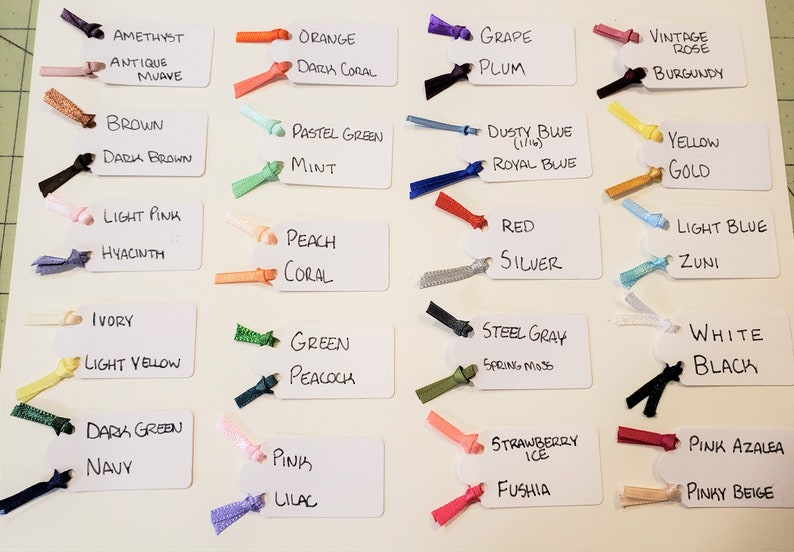 AMETHYST
ANTIQUE
MUAVE
ORANGE
DARK CORAL
GRAPE
PLUM
VINTAGE
ROSE
BURGUNDY
BROWN
DARK BROWN
PASTEL GREEN
MINT
DUSTY BLUE
(1/16)
ROYAL BLUE
YELLOW
GOLD
LIGHT PINK
HYACINTH
PEACH
CORAL
RED
SILVER
LIGHT BLUE
ZUNI
IVORY
LIGHT YELLOW
GREEN
PEACOCK
STEEL GRAY
SPRING MOSS
WHITE
BLACK
DARK GREEN
NAVY
PINK
LILAC
STRAWBERRY
ICE
FUSHIA
PINK AZALEA
PINKY BEIGE